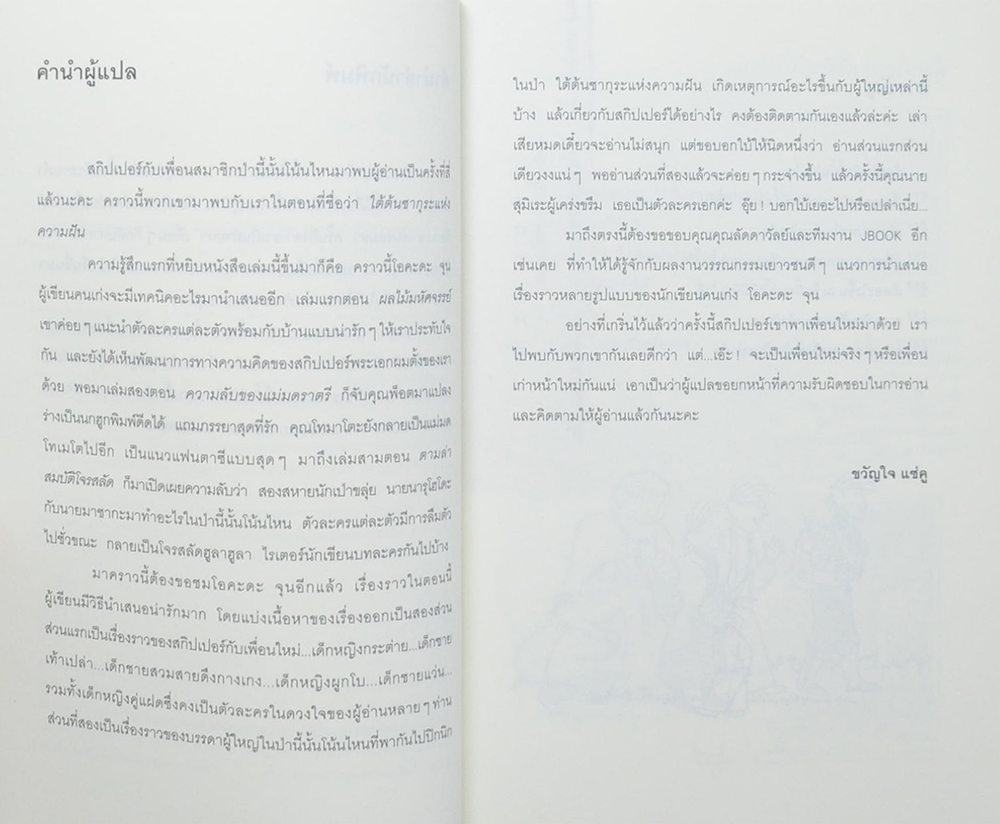 คำนำผู้แปล
สกิปเปอร์กับเพื่อนสมาชิกป่านี้นั้นโน้นไหนมาพบผู้อ่านเป็นครั้งที่สี่
แล้วนะคะ คราวนี้พวกเขามาพบกับเราในตอนที่ชื่อว่า ใต้ต้นซากุระแห่ง
ความฝัน
ความรู้สึกแรกที่หยิบหนังสือเล่มนี้ขึ้นมาก็คือ คราวนี้โอคะดะ จุน
ผู้เขียนคนเก่งจะมีเทคนิคอะไรมานำเสนออีก เล่มแรกตอน ผลไม้มหัศจรรย์
เขาค่อยๆ แนะนำตัวละครแต่ละตัวพร้อมกับบ้านแบบน่ารักๆ ให้เราประทับใจ
กัน และยังได้เห็นพัฒนาการทางความคิดของสกิปเปอร์พระเอกผมตั้งของเรา
ด้วย พอมาเล่มสองตอน ความลับของแม่มดราตรี ก็จับคุณพ็อตมาแปลง
ร่างเป็นนกฮูกพิมพ์ดีดได้ แถมภรรยาสุดที่รัก คุณโทมาโตะยังกลายเป็นแม่มด
โทเมโตไปอีก เป็นแนวแฟนตาซีแบบสุดๆ มาถึงเล่มสามตอน ตามล่า
สมบัติโจรสลัด ก็มาเปิดเผยความลับว่า สองสหายนักเป่าขลุ่ย นายนารุโฮโดะ
กับนายมาซากะมาทำอะไรในป่านี้นั้นโน้นไหน ตัวละครแต่ละตัวมีการลืมตัว
ไปชั่วขณะ กลายเป็นโจรสลัดฮูลาฮูลา ไรเตอร์นักเขียนบทละครกันไปบ้าง
มาคราวนี้ต้องขอชมโอคะดะ จุนอีกแล้ว เรื่องราวในตอนนี้
ผู้เขียนมีวิธีนำเสนอน่ารักมาก โดยแบ่งเนื้อหาของเรื่องออกเป็นสองส่วน
ส่วนแรกเป็นเรื่องราวของสกิปเปอร์กับเพื่อนใหม่...เด็กหญิงกระต่าย...เด็กชาย
เท้าเปล่า...เด็กชายสวมสายดึงกางเกง...เด็กหญิงผูกโบ...เด็กชายแว่น...
รวมทั้งเด็กหญิงคู่แฝดซึ่งคงเป็นตัวละครในดวงใจของผู้อ่านหลายๆ ท่าน
ส่วนที่สองเป็นเรื่องราวของบรรดาผู้ใหญ่ในป่านี้นั้นโน้นไหนที่พากันไปปิกนิก
ในป่า ใต้ต้นซากุระแห่งความฝัน เกิดเหตุการณ์อะไรขึ้นกับผู้ใหญ่เหล่านี้
บ้าง แล้วเกี่ยวกับสกิปเปอร์ได้อย่างไร คงต้องติดตามกันเองแล้วล่ะค่ะ เล่า
เสียหมดเดี๋ยวจะอ่านไม่สนุก แต่ขอบอกใบ้ให้นิดหนึ่งว่า อ่านส่วนแรกส่วน
เดียวงงแน่ๆ พออ่านส่วนที่สองแล้วจะค่อยๆ กระจ่างขึ้น แล้วครั้งนี้คุณนาย
สุมิเระผู้เคร่งขรึม เธอเป็นตัวละครเอกค่ะ อุ๊ย! บอกใบ้เยอะไปหรือเปล่าเนี่ย...
มาถึงตรงนี้ต้องขอขอบคุณคุณลัดดาวัลย์และทีมงาน JBOOK อีก
เช่นเคย ที่ทำให้ได้รู้จักกับผลงานวรรณกรรมเยาวชนดีๆ แนวการนำเสนอ
เรื่องราวหลายรูปแบบของนักเขียนคนเก่ง โอคะดะ จุน
อย่างที่เกริ่นไว้แล้วว่าครั้งนี้สกิปเปอร์เขาพาเพื่อนใหม่มาด้วย เรา
ไปพบกับพวกเขากันเลยดีกว่า แต่...เอ๊ะ! จะเป็นเพื่อนใหม่จริงๆ หรือเพื่อน
เก่าหน้าใหม่กันแน่ เอาเป็นว่าผู้แปลขอยกหน้าที่ความรับผิดชอบในการอ่าน
และคิดตามให้ผู้อ่านแล้วกันนะคะ
ขวัญใจ แซ่คู